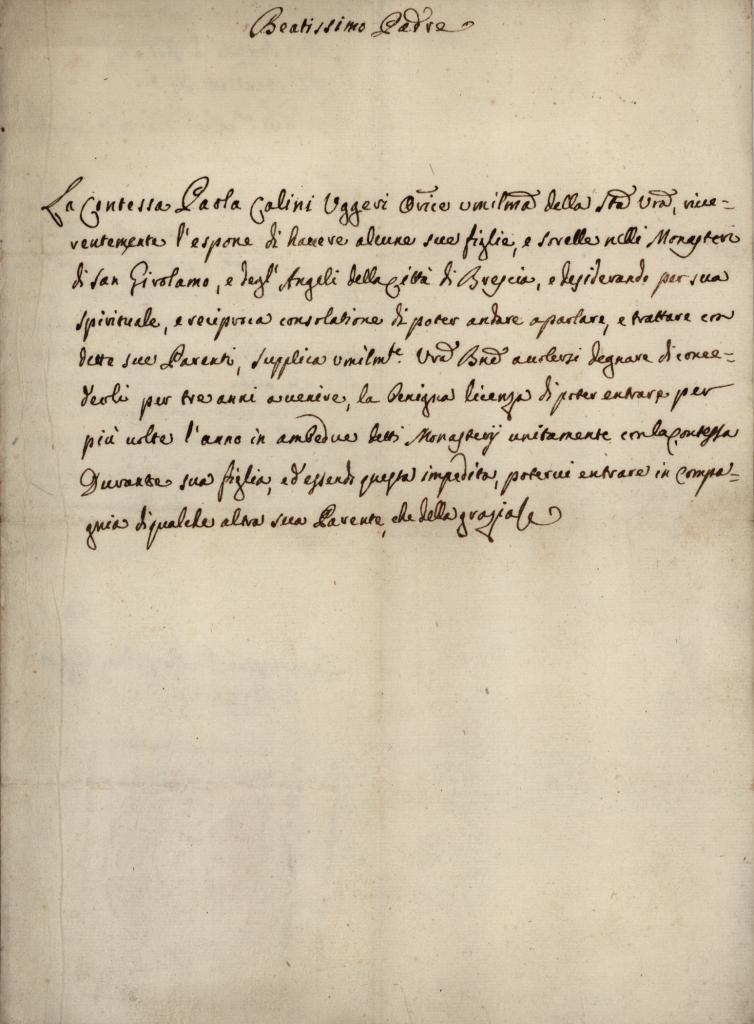 Beatissimo Padre
La Contessa Paola Calini Uggeri Orice umilma della Stà Vrà, rive=
rentemente l'espone di hauere alcune sue figlie, e sorelle nelli Monasteri
di San Girolamo, e degl' Angeli della Città di Brescia, e desiderando per sua
spirituale, e reciproca consolatione di poter andare a parlare, e trattare con
dette sue Parenti, supplica umilmte. Vrà Bnè a uolersi degnare di conce=
derli per tre anni a uenire, la benigna licenza di poter entrare per
più uolte l'anno in ambedue detti Monasterij unitamente con la Contessa
Durante sua figlia, ed essendo questa impedita, poterui entrare in compa=
gnia di qualche altra sua Parente, che della grazia